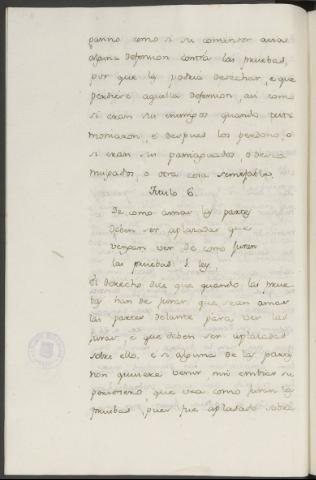 como si su contendor avia
alguna defension contra las pruebas,
por que las podria desechar, e que
perdiese aquella defension, asi como
si eran sus enemigos quando testi
moniaron, e despues los perdono, o
si eran sus paniaguados, o descu
mulgados, o otra cosa semejable,
Titulo 6.
De como amas las partes
deben ser aplazadas que
vengan ver de como juren
las pruebas. I. ley.
El derecho dice que quando las prue
bas han de jurar que sean amas
las partes delante para ver las
jurar, e que deben ser aplazadas
sobre ello, e si alguna de las partes
non quisiere venir, nin embiar su
personero, que vea como juran las
pruebas, pues fue aplazado sobre